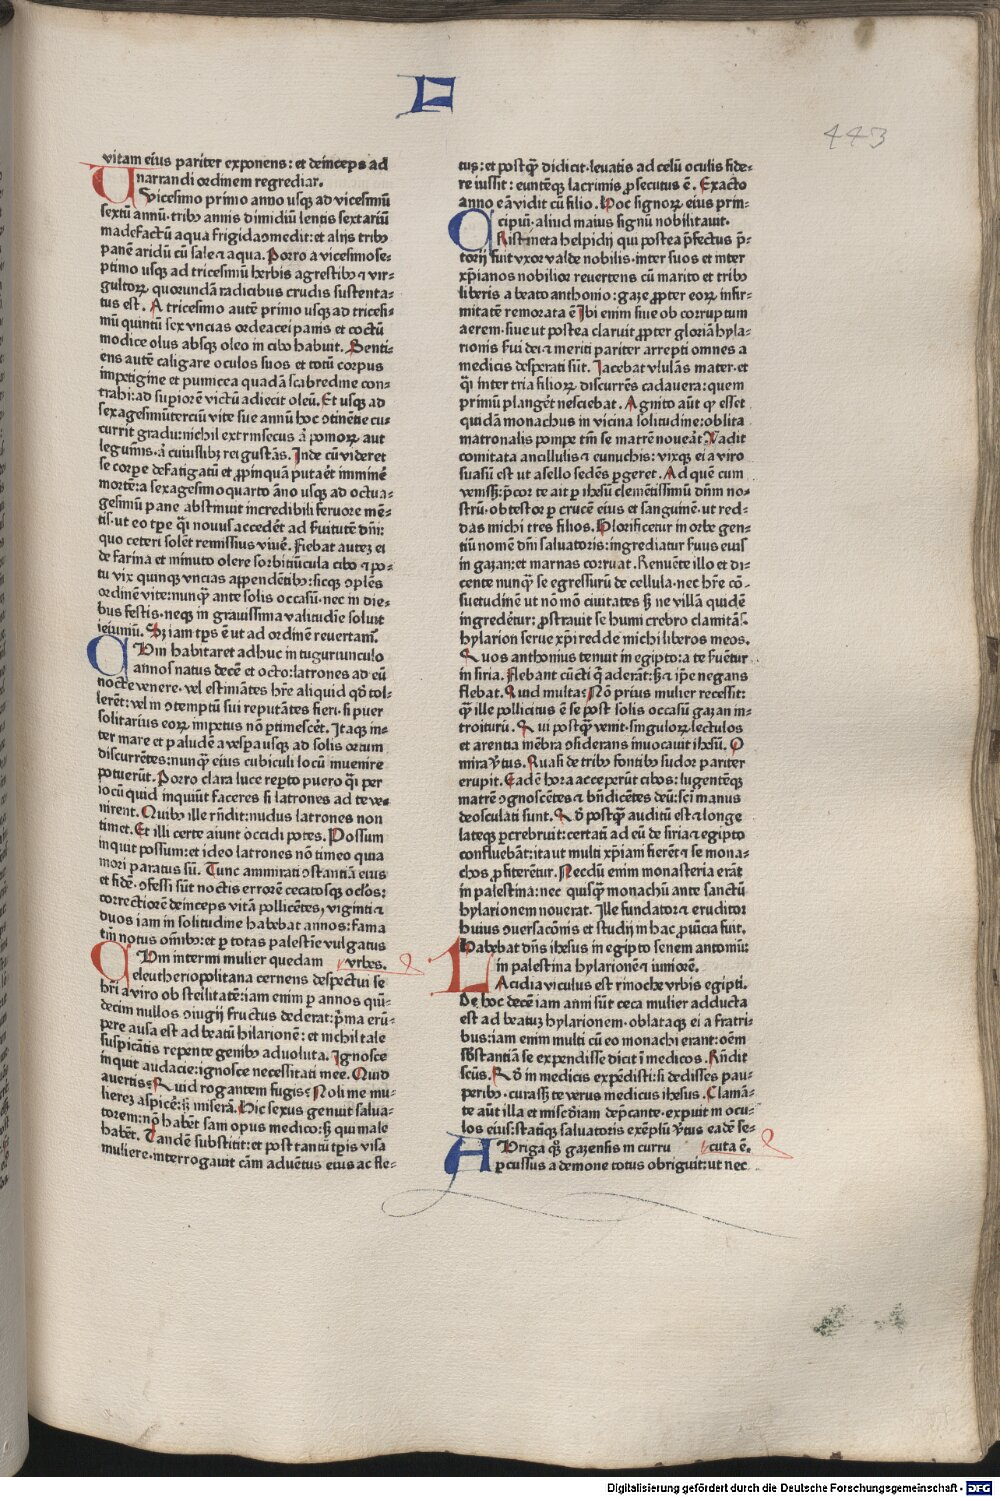 L
443
vitam eius pariter exponens: et deinceps ad
narrandi ordinem regrediar.
Uicesimo primo anno usq̄ ad vicesimū
sextū annū· tribꝰ annis dimidiū lentis sextariū
madefactū aqua frigida ꝯmedit: et alijs tribꝰ
panē aridū cū sale ⁊ aqua. Porro a vicesimose-
ptimo usq̄ ad tricesimū herbis agrestibꝰ ⁊ vir-
gultoꝝ quorundā radicibus crudis sustenta-
tus est. A tricesimo autē primo usq̄ ad tricesi-
mū quintū sex vncias ordeacei panis et coctū
modice olus absq̄ oleo in cibo habuit. Senti-
ens autē caligare oculos suos et totū corpus
impetigine et pumicea quadā scabredine con-
trahi: ad supiorē victū adiecit oleū. Et usq̄ ad
sexagesimūterciū vite sue annū hoc ꝯtinētie cu-
currit gradu: nichil extrinsecus aut pomoꝝ aut
legumīs· aut cuiuslibꝫ rei gustās. Inde cū videret
se corpe defatigatū et ꝓpinquā putaret imminē
mortē: a sexagesimoquarto āno usq̄ ad octua-
gesimū pane abstinuit incredibili feruore mē-
tis· ut eo tꝑe quasi nouus accedēt ad fuitutē dn̄i:
quo ceteri solēt remissius viuē. Fiebat autez ei
de farina et minuto olere sorbitiūcula cibo ⁊ po-
tu vix quinqꝫ vncias appendētibꝰ: sicqꝫ ꝯplēs
ordinē vite: nunq̄ ante solis occasū· nec in die-
bus festis· neqꝫ in grauissima valitudīe soluit
ieiuniū. Sꝫ iam tp̄s ē ut ad ordinē reuertam̄.
Cum habitaret adhuc in tuguriunculo
annos natus decē et octo: latrones ad eū
nocte venere· vel estimātes hr̄e aliquid qđ tol-
lerēt: vel in ꝯtemptū sui reputātes fieri· si puer
solitarius eoꝝ impetus nō ptimescēt. Itaqꝫ in-
ter mare et paludē a vespa usqꝫ ad solis ortum
discurrētes: nunq̄ eius cubiculi locū inuenire
potuerūt. Porro clara luce repto puero quasi per
iocū quid inquiūt faceres si latrones ad te ve-
nirent. Quibꝰ ille rn̄dit: nudus latrones non
timet. Et illi certe aiunt occidi potes. Possum
inquit possum: et ideo latrones nō timeo quia
mori paratus sū. Tunc ammirati ꝯstantiā eius
et fidē· ꝯfessi sūt noctis errorē cecatosqꝫ oclōs:
correctiorē deinceps vitā pollicētes, viginti ⁊
duos iam in solitudine habebat annos: fama
tm̄ notus om̄ibꝰ: et ꝑ totas palestīe vulgatus
Cum interim mulier quedam urbes.
eleutheriopolitana cernens despectui se
hr̄i a viro ob sterilitatē: iam enim ꝑ annos quī-
decim nullos ꝯiugij fructus dederat: pͥma erū-
pere ausa est ad beatū hilarionē: et nichil tale
suspicātis repente genibꝰ aduoluta. Ignosce
inquit audacie: ignosce necessitati mee. Quid
auertis: Quid rogantem fugis: Noli me mu-
lierez aspicē: sꝫ miserā. Hic sexus genuit salua-
torem: nō habēt sani opus medico: sꝫ qui male
habēt. Tandē substitit: et post tantū tp̄ris visa
muliere· interrogauit cām aduētus eius ac fle-
tus: et postq̄ didicit· leuatis ad celū oculis fide-
re iussit: euntēqꝫ lacrimis ꝓsecutus ē. Exacto
anno eā vidit cū filio. Hoc signoꝝ eius prin-
cipiū· aliud maius signū nobilitauit.
Aristineta helpidij qui postea pͥfectus pͥ-
torij fuit vxor valde nobilis· inter suos et inter
xp̄ianos nobilior reuertens cū marito et tribꝰ
liberis a beato anthonio: gaze ꝓpter eoꝝ infir-
mitatē remorata ē. Ibi enim siue ob corruptum
aerem· siue ut postea claruit ꝓpter gloriā hyla-
rionis fui dei ⁊ meriti pariter arrepti omnes a
medicis desperati sūt. Iacebat ululās mater· et
quasi inter tria filioꝝ discurrēs cadauera: quem
primū plangēt nesciebat. Agnito aūt ꝙ esset
quidā monachus in vicina solitudine: oblita
matronalis pompe tm̄ se matrē nouerat. Vadit
comitata ancillulis ⁊ eunuchis: vixqꝫ ei a viro
suasū est ut asello sedēs ꝑgeret. Ad quē cum
venissꝫ: pͥcor te ait ꝑ ihesū clemētissimū dn̄m no-
strū· obtestor ꝑ crucē eius et sanguinē· ut red-
das michi tres filios. Glorificetur in orbe gen-
tiū nomē dn̄i saluatoris: ingrediatur fuus eius
in gazan: et marnas corruat. Renuēte illo et di-
cente nunq̄ se egressurū de cellula· nec hr̄e cō-
suetudinē ut nō mō ciuitates sꝫ ne villā quidē
ingrederetur: ꝓstrauit se humi crebro clamitās.
hylarion serue xp̄i redde michi liberos meos.
Quos anthonius tenuit in egipto: a te fuētur
in siria. Flebant cūcti qui aderāt: sꝫ ⁊ ip̄e negans
flebat. Quid multa: Nō prius mulier recessit:
q̄ ille pollicitus ē se post solis occasū gazan in-
troiturū. Qui postq̄ venit· singuloꝝ lectulos
et arentia mēbra ꝯsiderans inuocauit ihesū. O
mira v̄tus. Quasi de tribꝰ fontibꝰ sudor pariter
erupit. Eadē hora acceperūt cibos: lugentēqꝫ
matrē ꝯgnoscētes ⁊ bn̄dicētes deū: sci manus
deosculati sunt. Qđ postq̄ auditū est ⁊ longe
lateqꝫ ꝑcrebruit: certati ad eū de siria ⁊ egipto
confluebāt: ita ut multi xp̄iam fierēt ⁊ se mona-
chos ꝓfiterētur. Necdū enim monasteria erāt
in palestina: nec quisq̄ monachū ante sanctū
hylarionem nouerat. Ille fundator ⁊ eruditor
huius ꝯuersacōnis et studij in hac ꝓuīcia fuit.
Habebat dn̄s ihesus in egipto senem antoniū:
in palestina hylarionē ⁊ iuniorē.
Lacidia viculus est rinoche vrbis egipti.
De hoc decē iam anni sūt ceca mulier adducta
est ad beatuz hylarionem· oblataqꝫ ei a fratri-
bus: iam enim multi cū eo monachi erant: oēm
sb̄stantiā se expendisse dicit ī medicos. Rn̄dit
scūs. Qđ in medicis expēdisti: si dedisses pau-
peribꝰ· curassꝫ te verus medicus ihesus. Clamā-
te aūt illa et miscd̄iam dep̄cante· expuit in ocu-
los eius: statīqꝫ saluatoris exemplū v̄tus eadē se-
Auriga qꝫ gazensis in curru cuta ē.
ꝑcussus a demone totus obriguit: ut nec
Digitalisierung gefördert durch die Deutsche Forschungsgemeinschaft - DFG